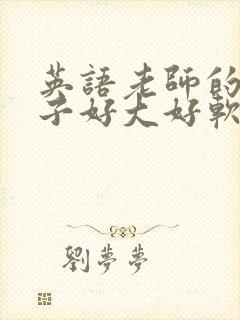 英語老師的
子好大好軟
劉夢夢